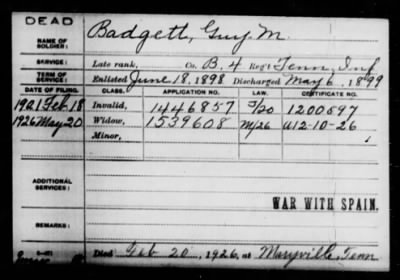 DEAD
NAME OF SOLDIER: Badgett, Guy M.
SERVICE: Late rank, Co. B. 4 Reg't Tenn. Inf
TERM OF SERVICE: Enlisted June 18, 1898 Discharged May 6, 1899
DATE OF FILING. CLASS. APPLICATION NO. LAW. CERTIFICATE NO.
1901 Feb 18 Invalid, 1446857 1200597
1926 May 20 Widow, 1539608 A 12-10-26
Minor,
ADDITIONAL SERVICES:
WAR WITH SPAIN.
REMARKS:
Died Feb 20, 1926, at Maryville, Tenn